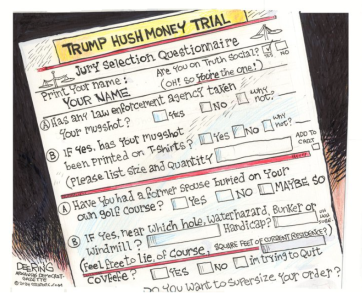 TRUMP HUSH MONEY TRIAL
Jury Selection Questionnaire
Are You on Truth Social? YES NO
Print Your name: (OH! SO You're the one!)
YOUR NAME
Ⓐ Has any law enforcement agency taken
Your mugshot? YES NO WHY not?
Ⓑ IF Yes, has Your mugshot
been Printed on T-Shirts? YES NO WHY not?
(Please list size and Quantity) ADD TO CART
Ⓐ Have You had a former Spouse buried on Your
own golf Course? YES NO MAYBE SO
Ⓑ IF Yes, near Which hole, Waterhazard, Bunker or
Windmill? Handicap?
(Feel free to lie, of Course, SQUARE FEET OF CURRENT RESIDENCE?)
Covfefe? YES NO in trying to Quit
DO YOU Want to SuperSize Your order?
DEERING
ARKANSAS DEMOCRAT-
GAZETTE